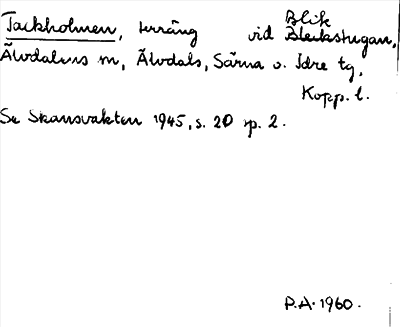 Tackholmen, terräng vid Blik
Bleckstugan,
Älvdalens m, Älvdals, Särna o. Idre tg,
Kopp. l.
Se Skansvakten 1945, s. 20 sp. 2.
P.A. 1960.